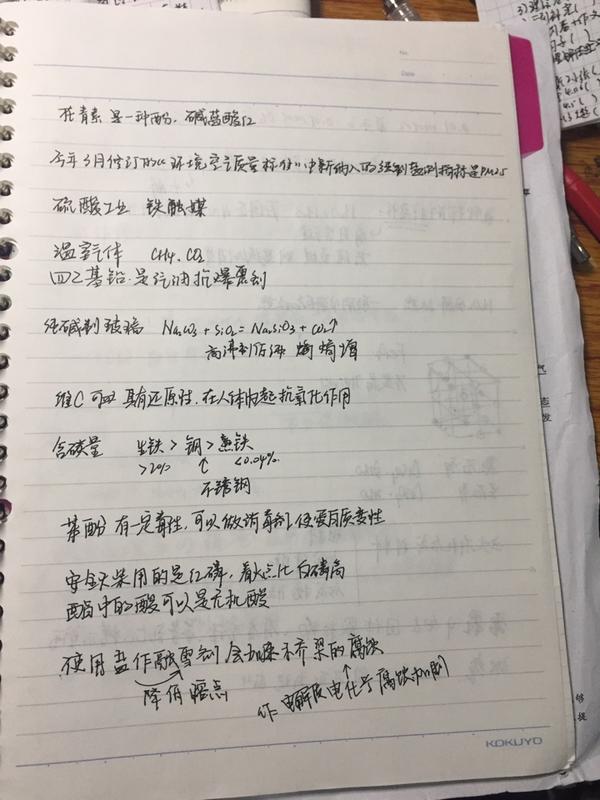 No.
Date
花青素 是一种酚. 碱蓝酸红
今年3月修订的《环境空气质量标准》中新纳入的强制监测指标是PM2.5
硫酸工业 铁触媒
温室气体 CH4. CO2
四乙基铅.是汽油抗爆震剂
纯碱制玻璃 Na2CO3 + SiO2 = Na2SiO3 + CO2↑
高沸制低沸 熵增
维C可以 具有还原性. 在人体内起抗氧化作用
含碳量 生铁 > 钢 > 熟铁
>2% ↑ <0.04%.
不锈钢
苯酚 有一定毒性, 可以做消毒剂 使蛋白质变性
安全火柴用的是红磷, 着火点比白磷高
酯中的酸可以是无机酸
使用盐作融雪剂 会加速桥梁的腐蚀
降低熔点
作电解质 电化学腐蚀加剧
KOKUYO